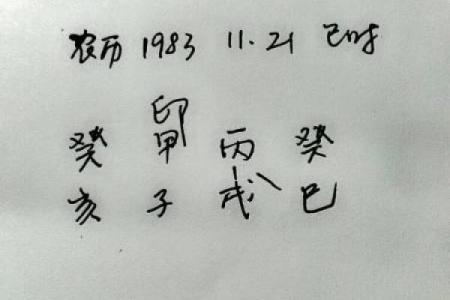 农历 1983 11.21 巳时
印
癸 甲 丙 癸
亥 子 戌 巳